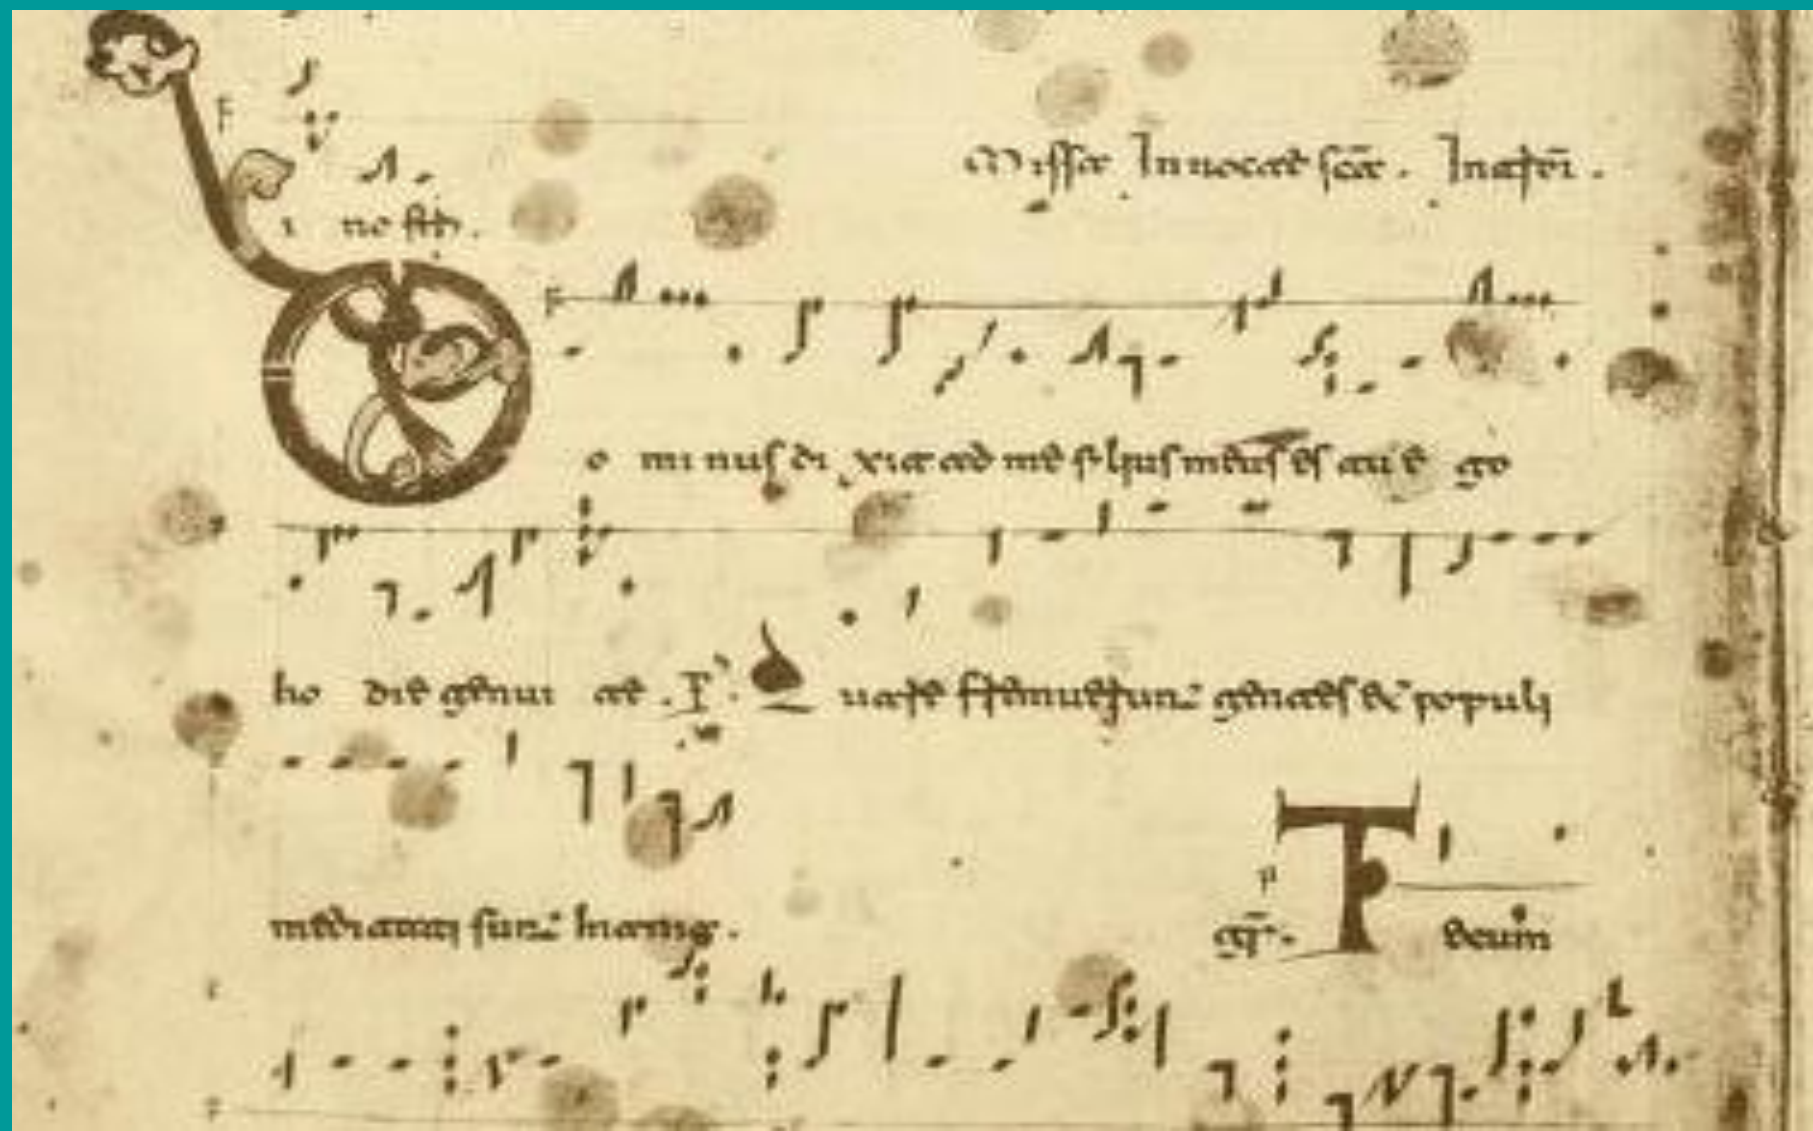 Missa In nocte scā .
Dominus dixit ad me filius meus es tu ego
hodie genui te . P . Quare fremuerunt gentes & populi
meditati sunt inania .
gr̄. Tecum